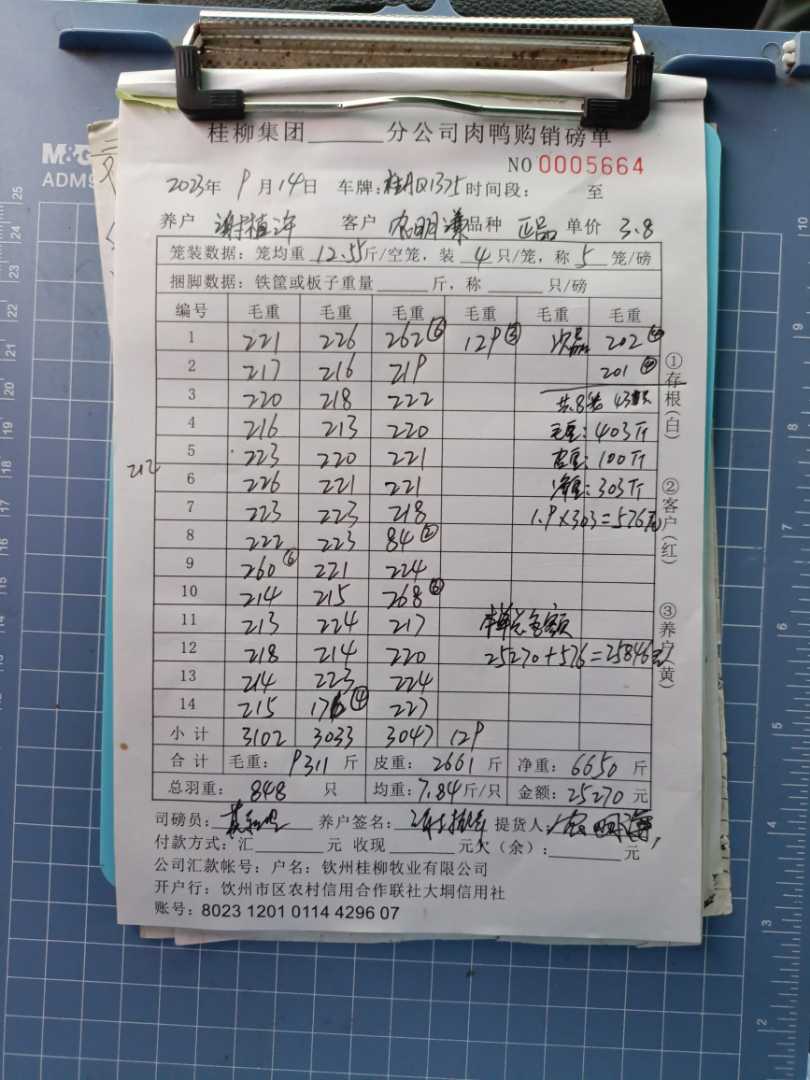 桂柳集团______分公司肉鸭购销磅单
NO 0005664
2023年 9月14日 车牌:桂AQ1375 时间段: 至
养户 谢植许 客户 农明谦 品种 正品 单价 3.8
笼装数据: 笼均重 12.55 斤/空笼, 装 4 只/笼, 称 5 笼/磅
捆脚数据: 铁筐或板子重量______斤, 称______只/磅
编号 毛重 毛重 毛重 毛重 毛重 毛重
1 221 226 262⑥ 129③ 次品 202④
2 217 216 219 201④
3 220 218 222 共8笼 43只
4 216 213 220 毛重:403斤
5 223 220 221 皮重:100斤
212
6 226 221 221 净重:303斤
7 223 223 218 1.9×303=576元
8 222 223 84②
9 260⑥ 221 224
10 214 215 268⑥
11 213 224 217 本单总金额
12 218 214 220 25270+576=25846元
13 214 223 224
14 215 176④ 227
小计 3102 3033 3047 129
合计 毛重: 9311 斤 皮重: 2661 斤 净重: 6650 斤
总羽重: 848 只 均重: 7.84 斤/只 金额: 25270 元
司磅员: 养户签名: 提货人: 农明谦
付款方式: 汇______元 收现______元欠(余):______元
公司汇款帐号: 户名: 钦州桂柳牧业有限公司
开户行: 钦州市区农村信用合作联社大垌信用社
账号: 8023 1201 0114 4296 07
①存根(白)
②客户(红)
③养户(黄)
M&G
ADM9